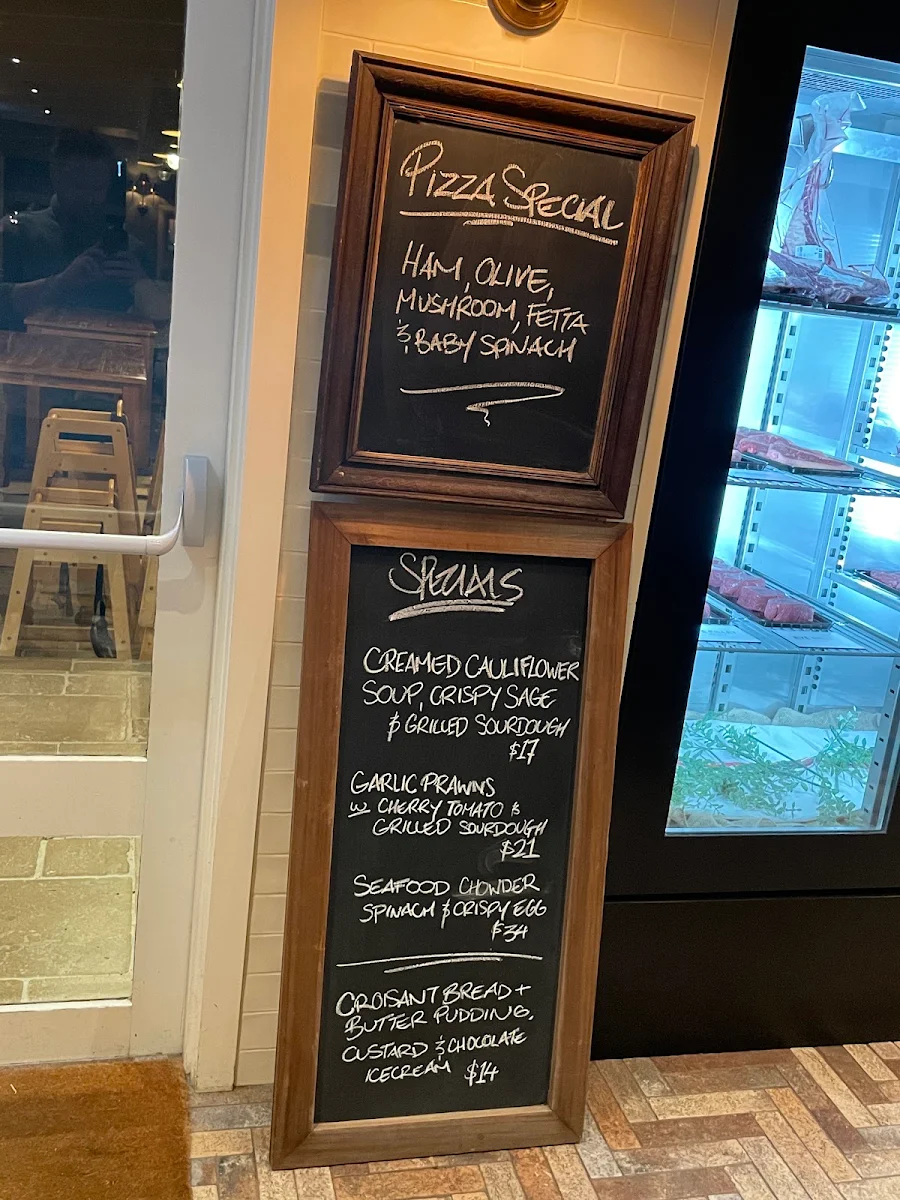 PIZZA SPECIAL
HAM, OLIVE,
MUSHROOM, FETTA
& BABY SPINACH
SPECIALS
CREAMED CAULIFLOWER
SOUP, CRISPY SAGE
& GRILLED SOURDOUGH
$17
GARLIC PRAWNS
w CHERRY TOMATO &
GRILLED SOURDOUGH
$21
SEAFOOD CHOWDER
SPINACH & CRISPY EGG
$34
CROISANT BREAD +
BUTTER PUDDING,
CUSTARD & CHOCOLATE
ICECREAM $14